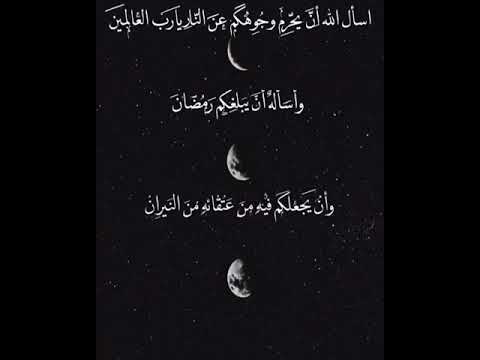 اسأل الله أنَّ يحّرِم وجُوهُكُم عِنَ النّار يارَب العَالمِينَ
وأسَألهُ أنَ يبَلغِكُم رَمُضّانَ
وأن يَجعَلكُم فيْهِ مِنَ عَتقائهِ مَنَ النَيرِان